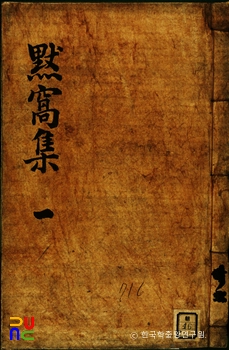 默窩集
一
716
UNC
© 한국학중앙연구원